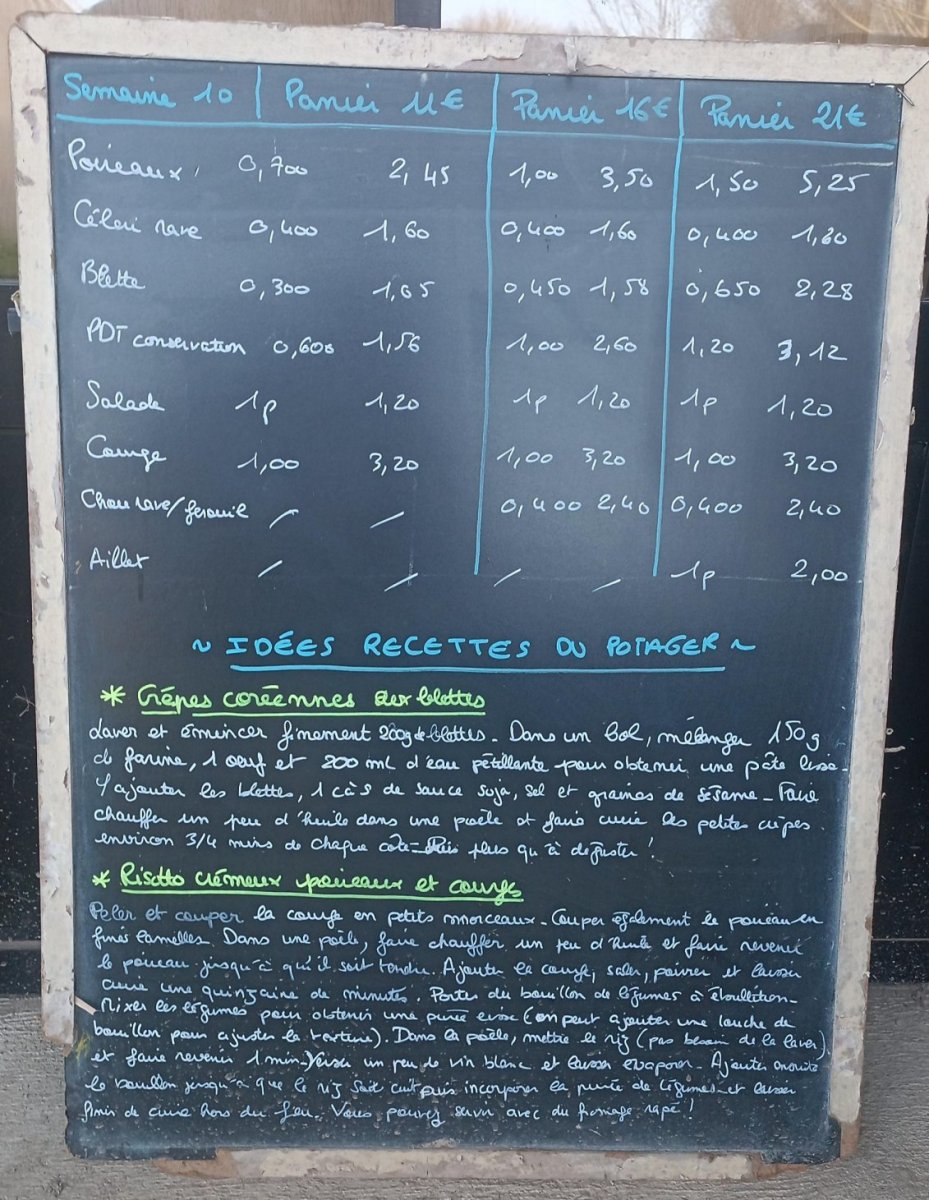 Semaine 10 | Panier 11€ | Panier 16€ | Panier 21€
Poireaux 0,700 2,45 1,00 3,50 1,50 5,25
Céleri rave 0,400 1,60 0,400 1,60 0,400 1,60
Blette 0,300 1,05 0,450 1,58 0,650 2,28
PDT conservation 0,600 1,56 1,00 2,60 1,20 3,12
Salade 1p 1,20 1p 1,20 1p 1,20
Courge 1,00 3,20 1,00 3,20 1,00 3,20
Chou rave/fenouil / / 0,400 2,40 0,400 2,40
Aillet / / / / 1p 2,00
~ IDÉES RECETTES DU POTAGER ~
* Crêpes coréennes aux blettes
Laver et émincer finement 200g de blettes. Dans un bol, mélanger 150g
de farine, 1 oeuf et 200 mL d'eau pétillante pour obtenir une pâte lisse.
Y ajouter les blettes, 1 càs de sauce soja, sel et graines de sésame. Faire
chauffer un peu d'huile dans une poêle et faire cuire les petites crêpes
environ 3/4 mins de chaque côté. Puis plus qu'à déguster !
* Risotto crémeux poireaux et courge
Peler et couper la courge en petits morceaux. Couper également le poireau en
fines lamelles. Dans une poêle, faire chauffer un peu d'huile et faire revenir
le poireau jusqu'à qu'il soit tendre. Ajouter la courge, saler, poivrer et laisser
cuire une quinzaine de minutes. Porter du bouillon de légumes à ébullition.
Mixer les légumes pour obtenir une purée (on peut ajouter une louche de
bouillon pour ajuster la texture). Dans la poêle, mettre le riz (pas besoin de le laver)
et faire revenir 1 min. Verser un peu de vin blanc et laisser évaporer. Ajouter ensuite
le bouillon jusqu'à que le riz soit cuit puis incorporer la purée de légumes et laisser
finir de cuire hors du feu. Vous pouvez servir avec du fromage rapé !